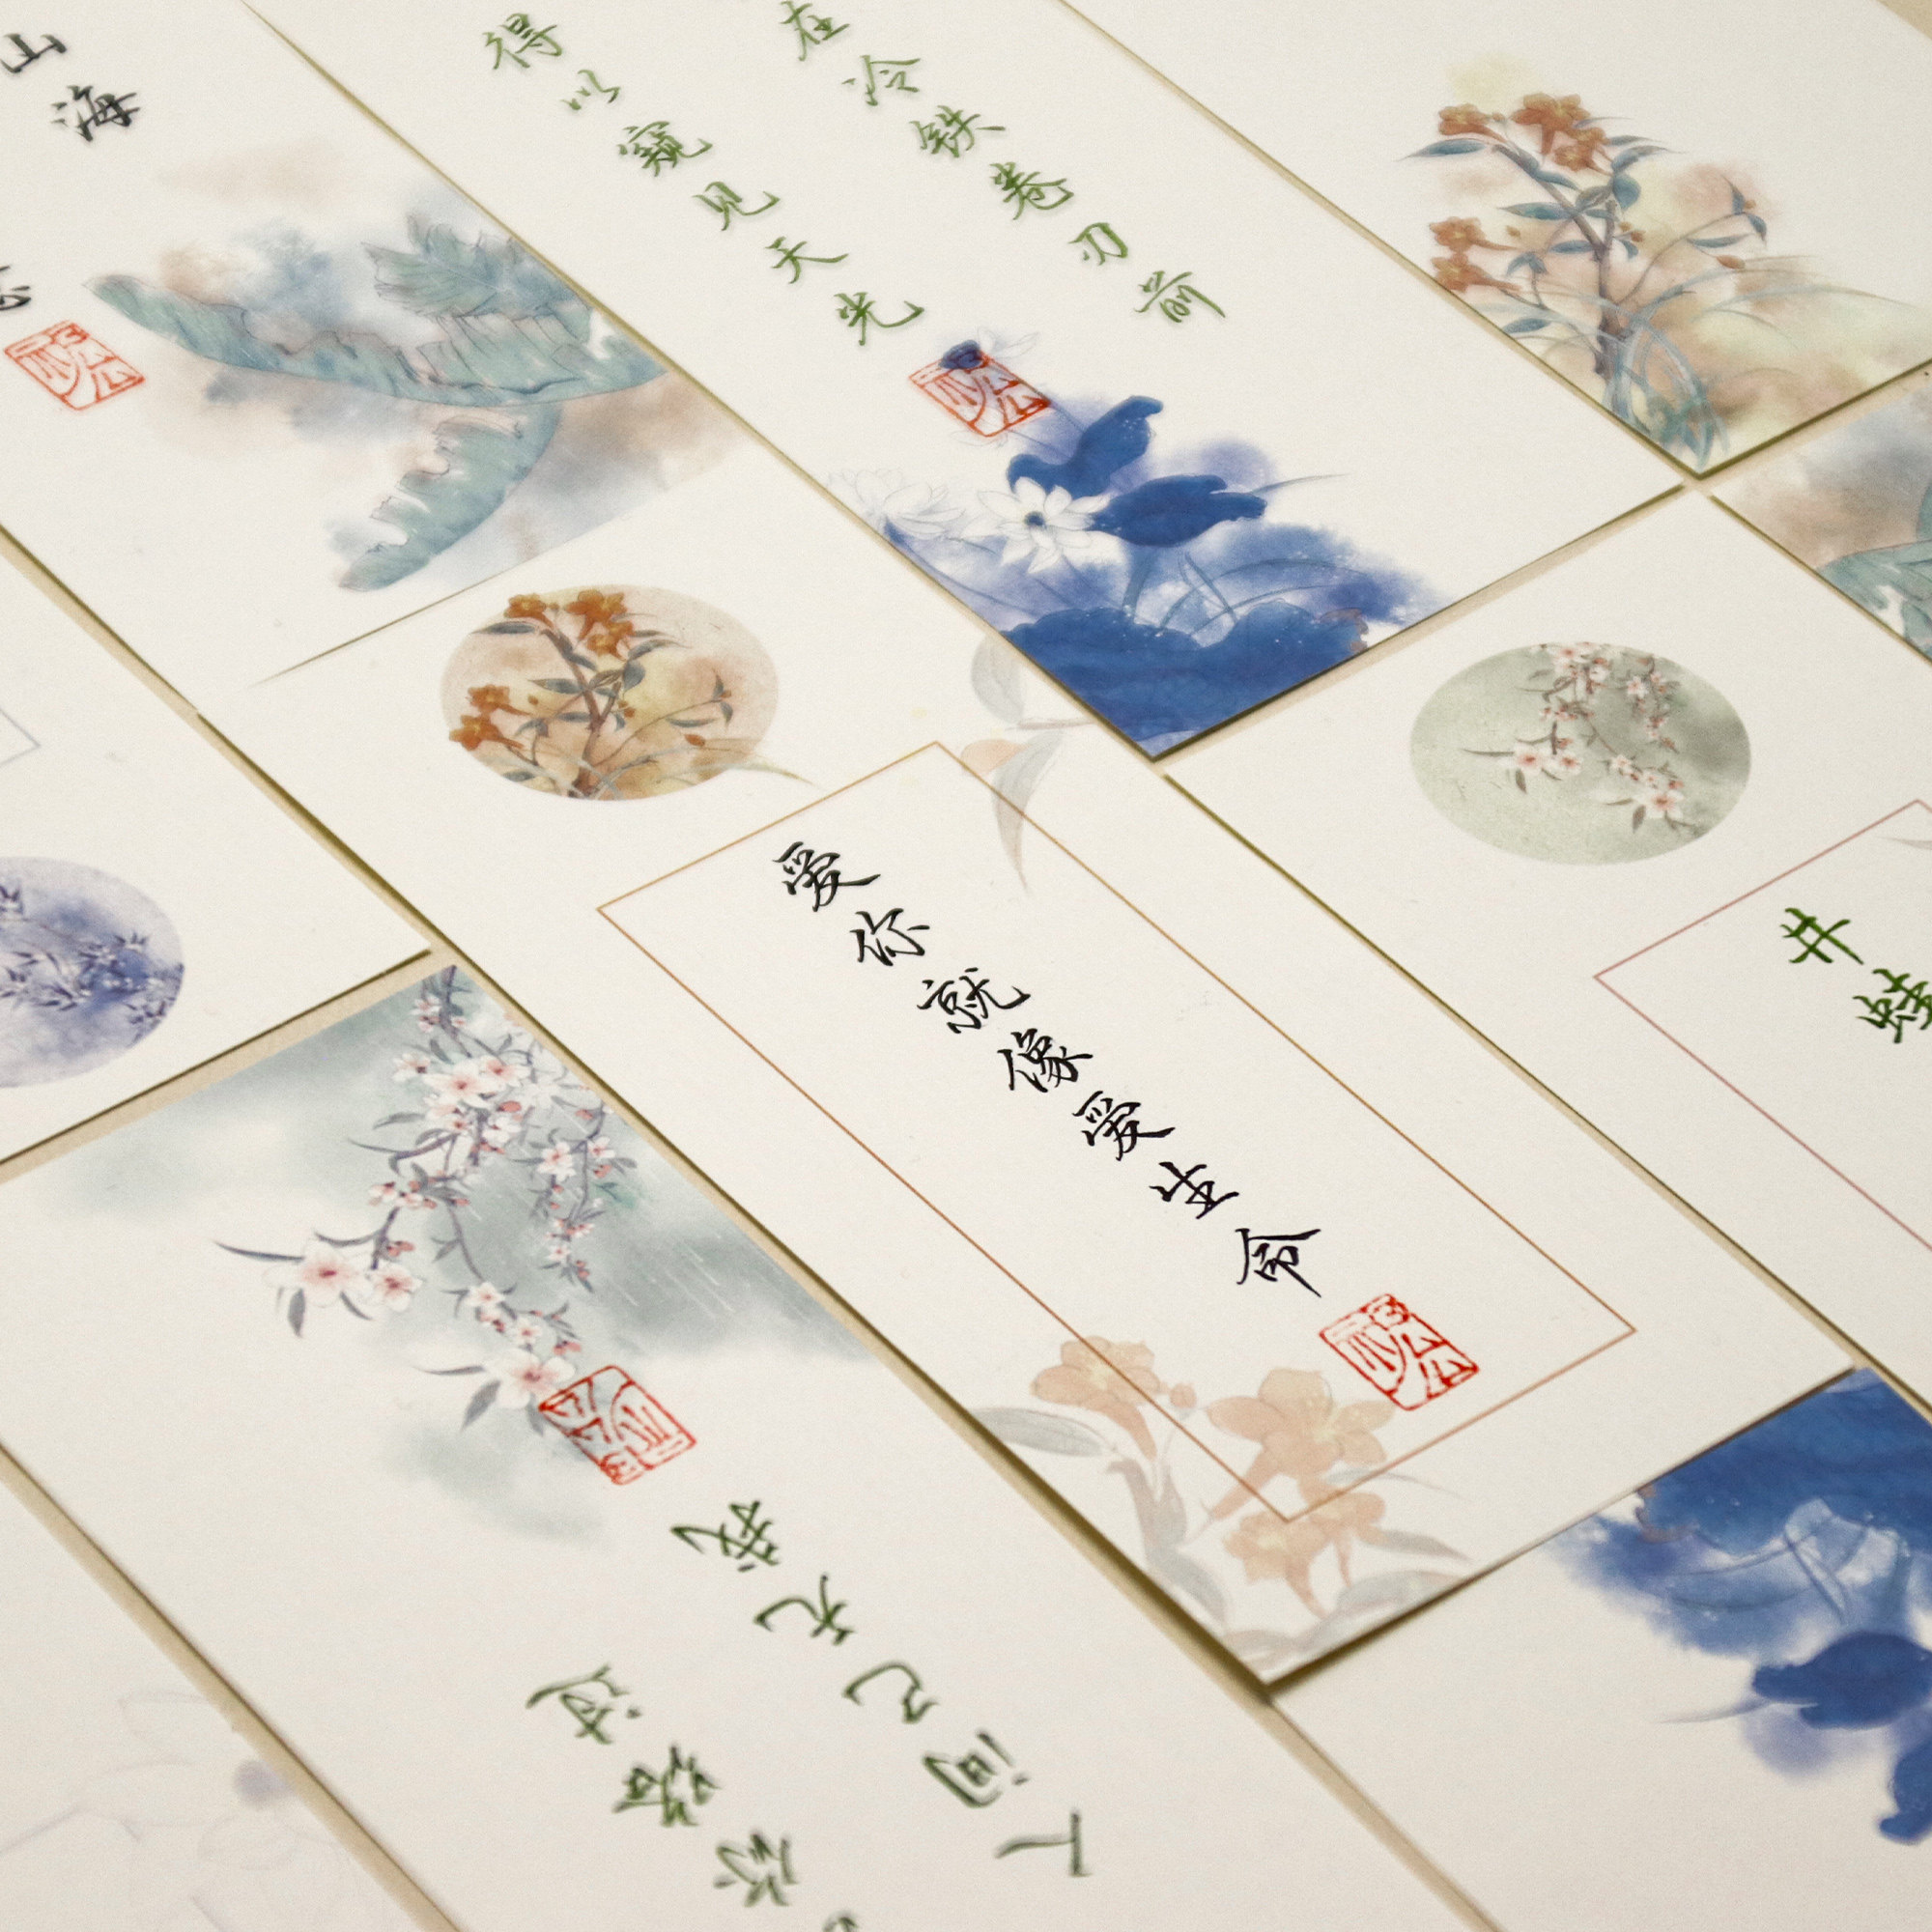 山海
在冷铁卷刃前
得以窥见天光
爱你就像爱生命
井蛙
你路过
间已无我